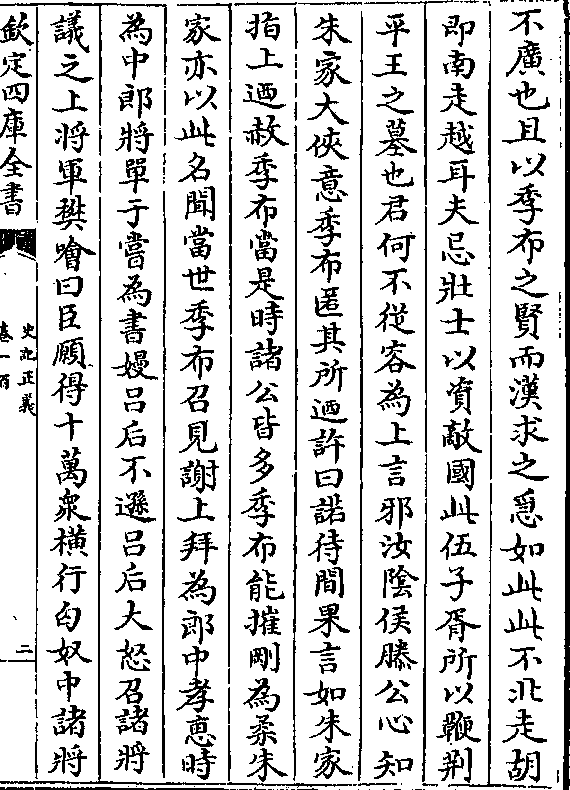 不廣也且以季布之賢而漢求之急如此此不北走胡
即南走越耳夫忌壯士以資敵國此伍子胥所以鞭荆
平王之墓也君何不從容為上言邪汝陰侯滕公心知
朱家大俠意季布匿其所迺許曰諾待間果言如朱家
指上迺赦季布當是時諸公皆多季布能摧剛為柔朱
家亦以此名聞當世季布召見謝上拜為郎中孝惠時
為中郎將單于嘗為書嫚吕后不遜吕后大怒召諸將
議之上將軍樊噲曰臣願得十萬衆横行匈奴中諸將
欽定四庫全書
史記正義
卷一百
二